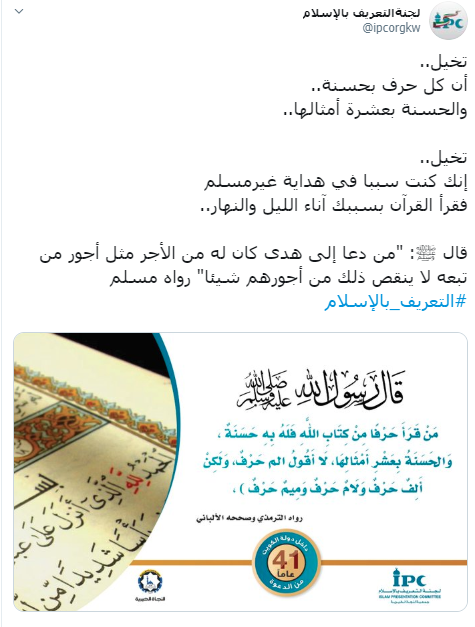 لجنة التعريف بالإسلام
@ipcorgkw
تخيل..
أن كل حرف بحسنة..
والحسنة بعشرة أمثالها..
تخيل..
إنك كنت سببا في هداية غيرمسلم
فقرأ القرآن بسببك آناء الليل والنهار..
قال ﷺ: "من دعا إلى هدى كان له من الأجر مثل أجور من
تبعه لا ينقص ذلك من أجورهم شيئا" رواه مسلم
#التعريف_بالإسلام
قال رسول الله صلى الله عليه وسلم
مَنْ قَرَأَ حَرْفًا مِنْ كِتَابِ اللَّهِ فَلَهُ بِهِ حَسَنَةٌ ،
وَالحَسَنَةُ بِعَشْرِ أَمْثَالِهَا، لَا أَقُولُ الم حَرْفٌ، وَلَكِنْ
أَلِفٌ حَرْفٌ وَلَامٌ حَرْفٌ وَمِيمٌ حَرْفٌ ) ،
رواه الترمذي وصححه الألباني
داخل دولة الكويت
41
عاماً
من الدعوة
النجاة الخيرية
IPC
لجنة التعريف بالإسلام
ISLAM PRESENTATION COMMITTEE